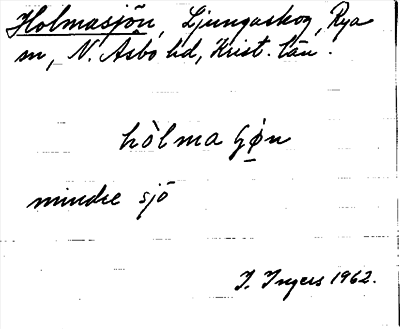 Holmasjön, Ljungaskog, Rya
sn, N. Åsbo hd, Krist. län.
hòlma ʃǿn
mindre sjö
I. Ingers 1962.